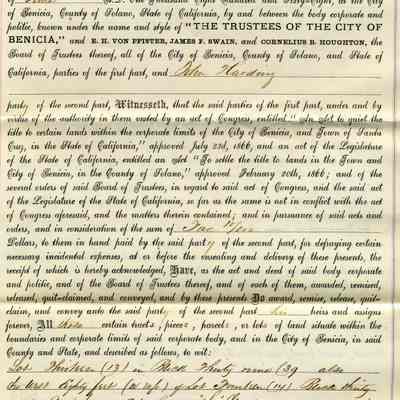 A.D. One Thousand Eight Hundred and Sixty-Eight, at the City
of Benicia, County of Solano, State of California, by and between the body corporate and
politic, known under the name and style of "THE TRUSTEES OF THE CITY OF
BENICIA," and E. H. VON PFISTER, JAMES F. SWAIN, and CORNELIUS B. HOUGHTON, the
Board of Trustees thereof, all of the City of Benicia, County of Solano, and State of
California, parties of the first part, and John Harding
party of the second part, Witnesseth, that the said parties of the first part, under and by
virtue of the authority in them vested by an act of Congress, entitled "An Act to quiet the
title to certain lands within the corporate limits of the City of Benicia, and Town of Santa
Cruz, in the State of California," approved July 23d, 1866, and an act of the Legislature
of the State of California, entitled an Act "To settle the title to lands in the Town and
City of Benicia, in the County of Solano," approved February 20th, 1866; and of the
several orders of said Board of Trustees, in regard to said act of Congress, and the said act
of the Legislature of the State of California, so far as the same is not in conflict with the act
of Congress aforesaid, and the matters therein contained; and in pursuance of said acts and
orders, and in consideration of the sum of
Dollars, to them in hand paid by the said party of the second part, for defraying certain
necessary incidental expenses, at or before the ensealing and delivery of these presents, the
receipt of which is hereby acknowledged, Have, as the act and deed of said body corporate
and politic, and of the Board of Trustees thereof, and of each of them, awarded, remised,
released, quit-claimed, and conveyed, and by these presents Do award, remise, release, quit-
claim, and convey unto the said party of the second part his heirs and assigns
forever, All those certain tracts, pieces, parcels, or lots of land situate within the
boundaries and corporate limits of said corporate body, and in the City of Benicia, in said
County and State, and described as follows, to wit:
Lot Thirteen (13) in Block Thirty nine (39 also
the west Eighty feet (w 80f) of Lot Fourteen (14) Block thirty